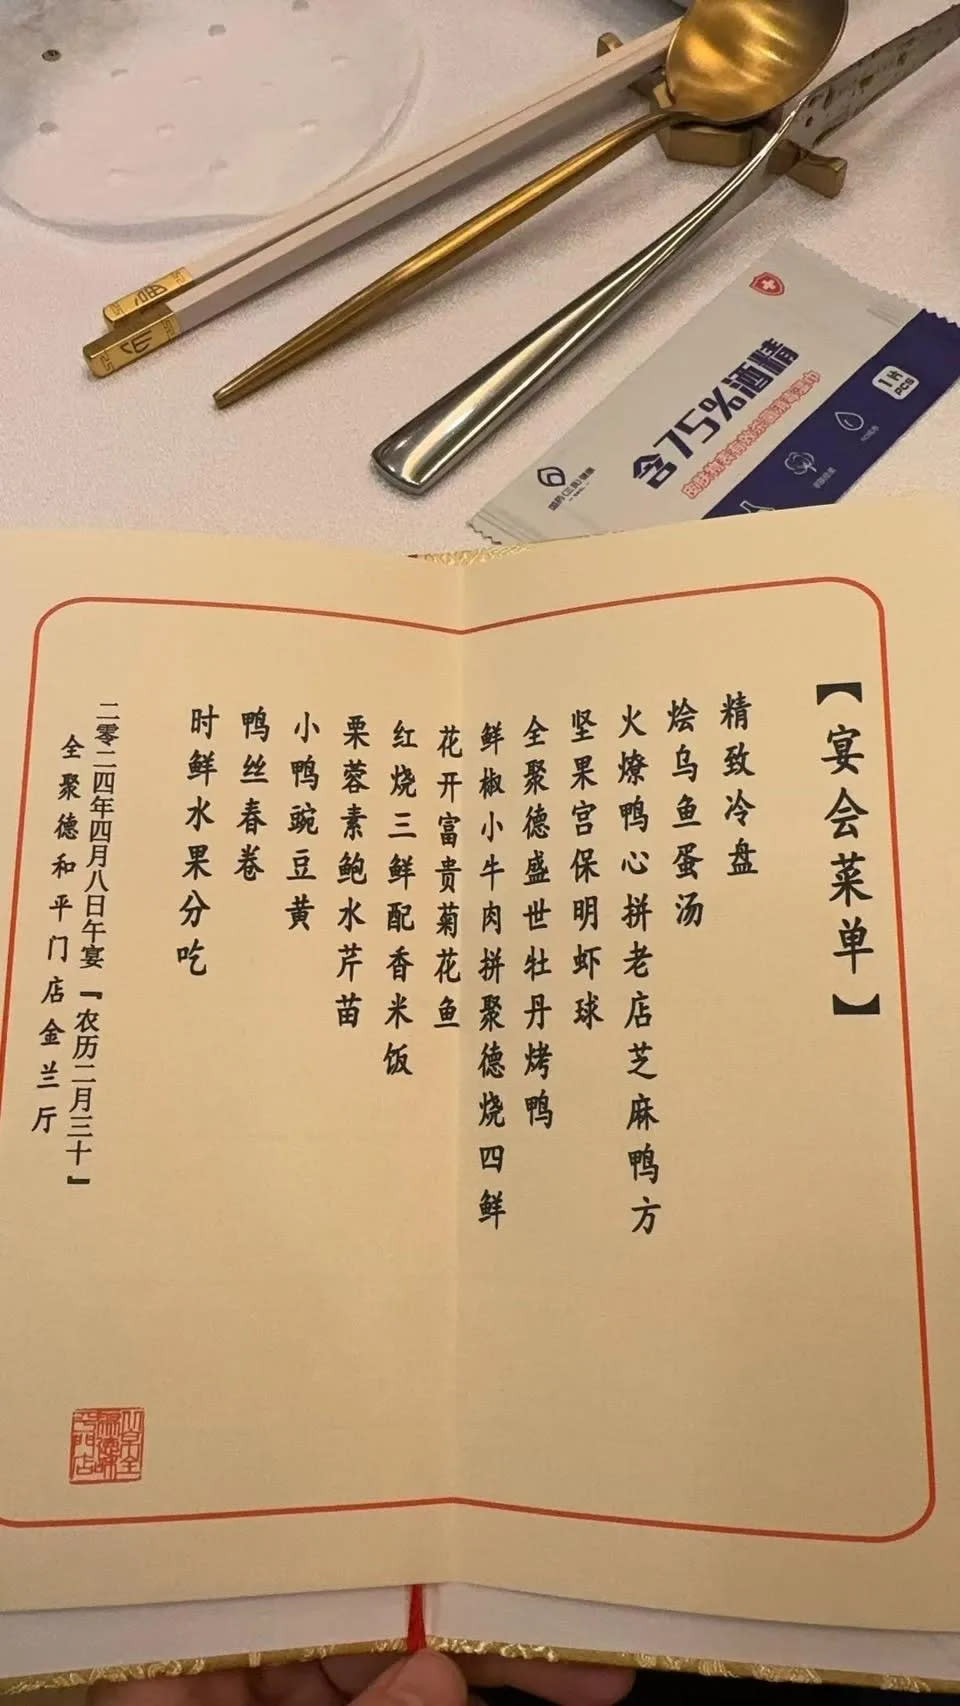 含75%酒精
1片
PCS
【宴会菜单】
精致冷盘
烩乌鱼蛋汤
火燎鸭心拼老店芝麻鸭方
坚果宫保明虾球
全聚德盛世牡丹烤鸭
鲜椒小牛肉拼聚德烧四鲜
花开富贵菊花鱼
红烧三鲜配香米饭
栗蓉素鲍水芹苗
小鸭豌豆黄
鸭丝春卷
时鲜水果分吃
二零二四年四月八日午宴『农历二月三十』
全聚德和平门店金兰厅